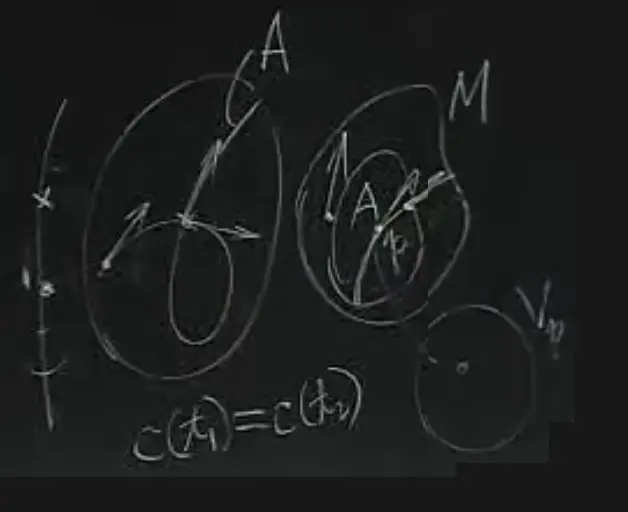 A
M
A
p
V_p
c(t₁)=c(t₂)